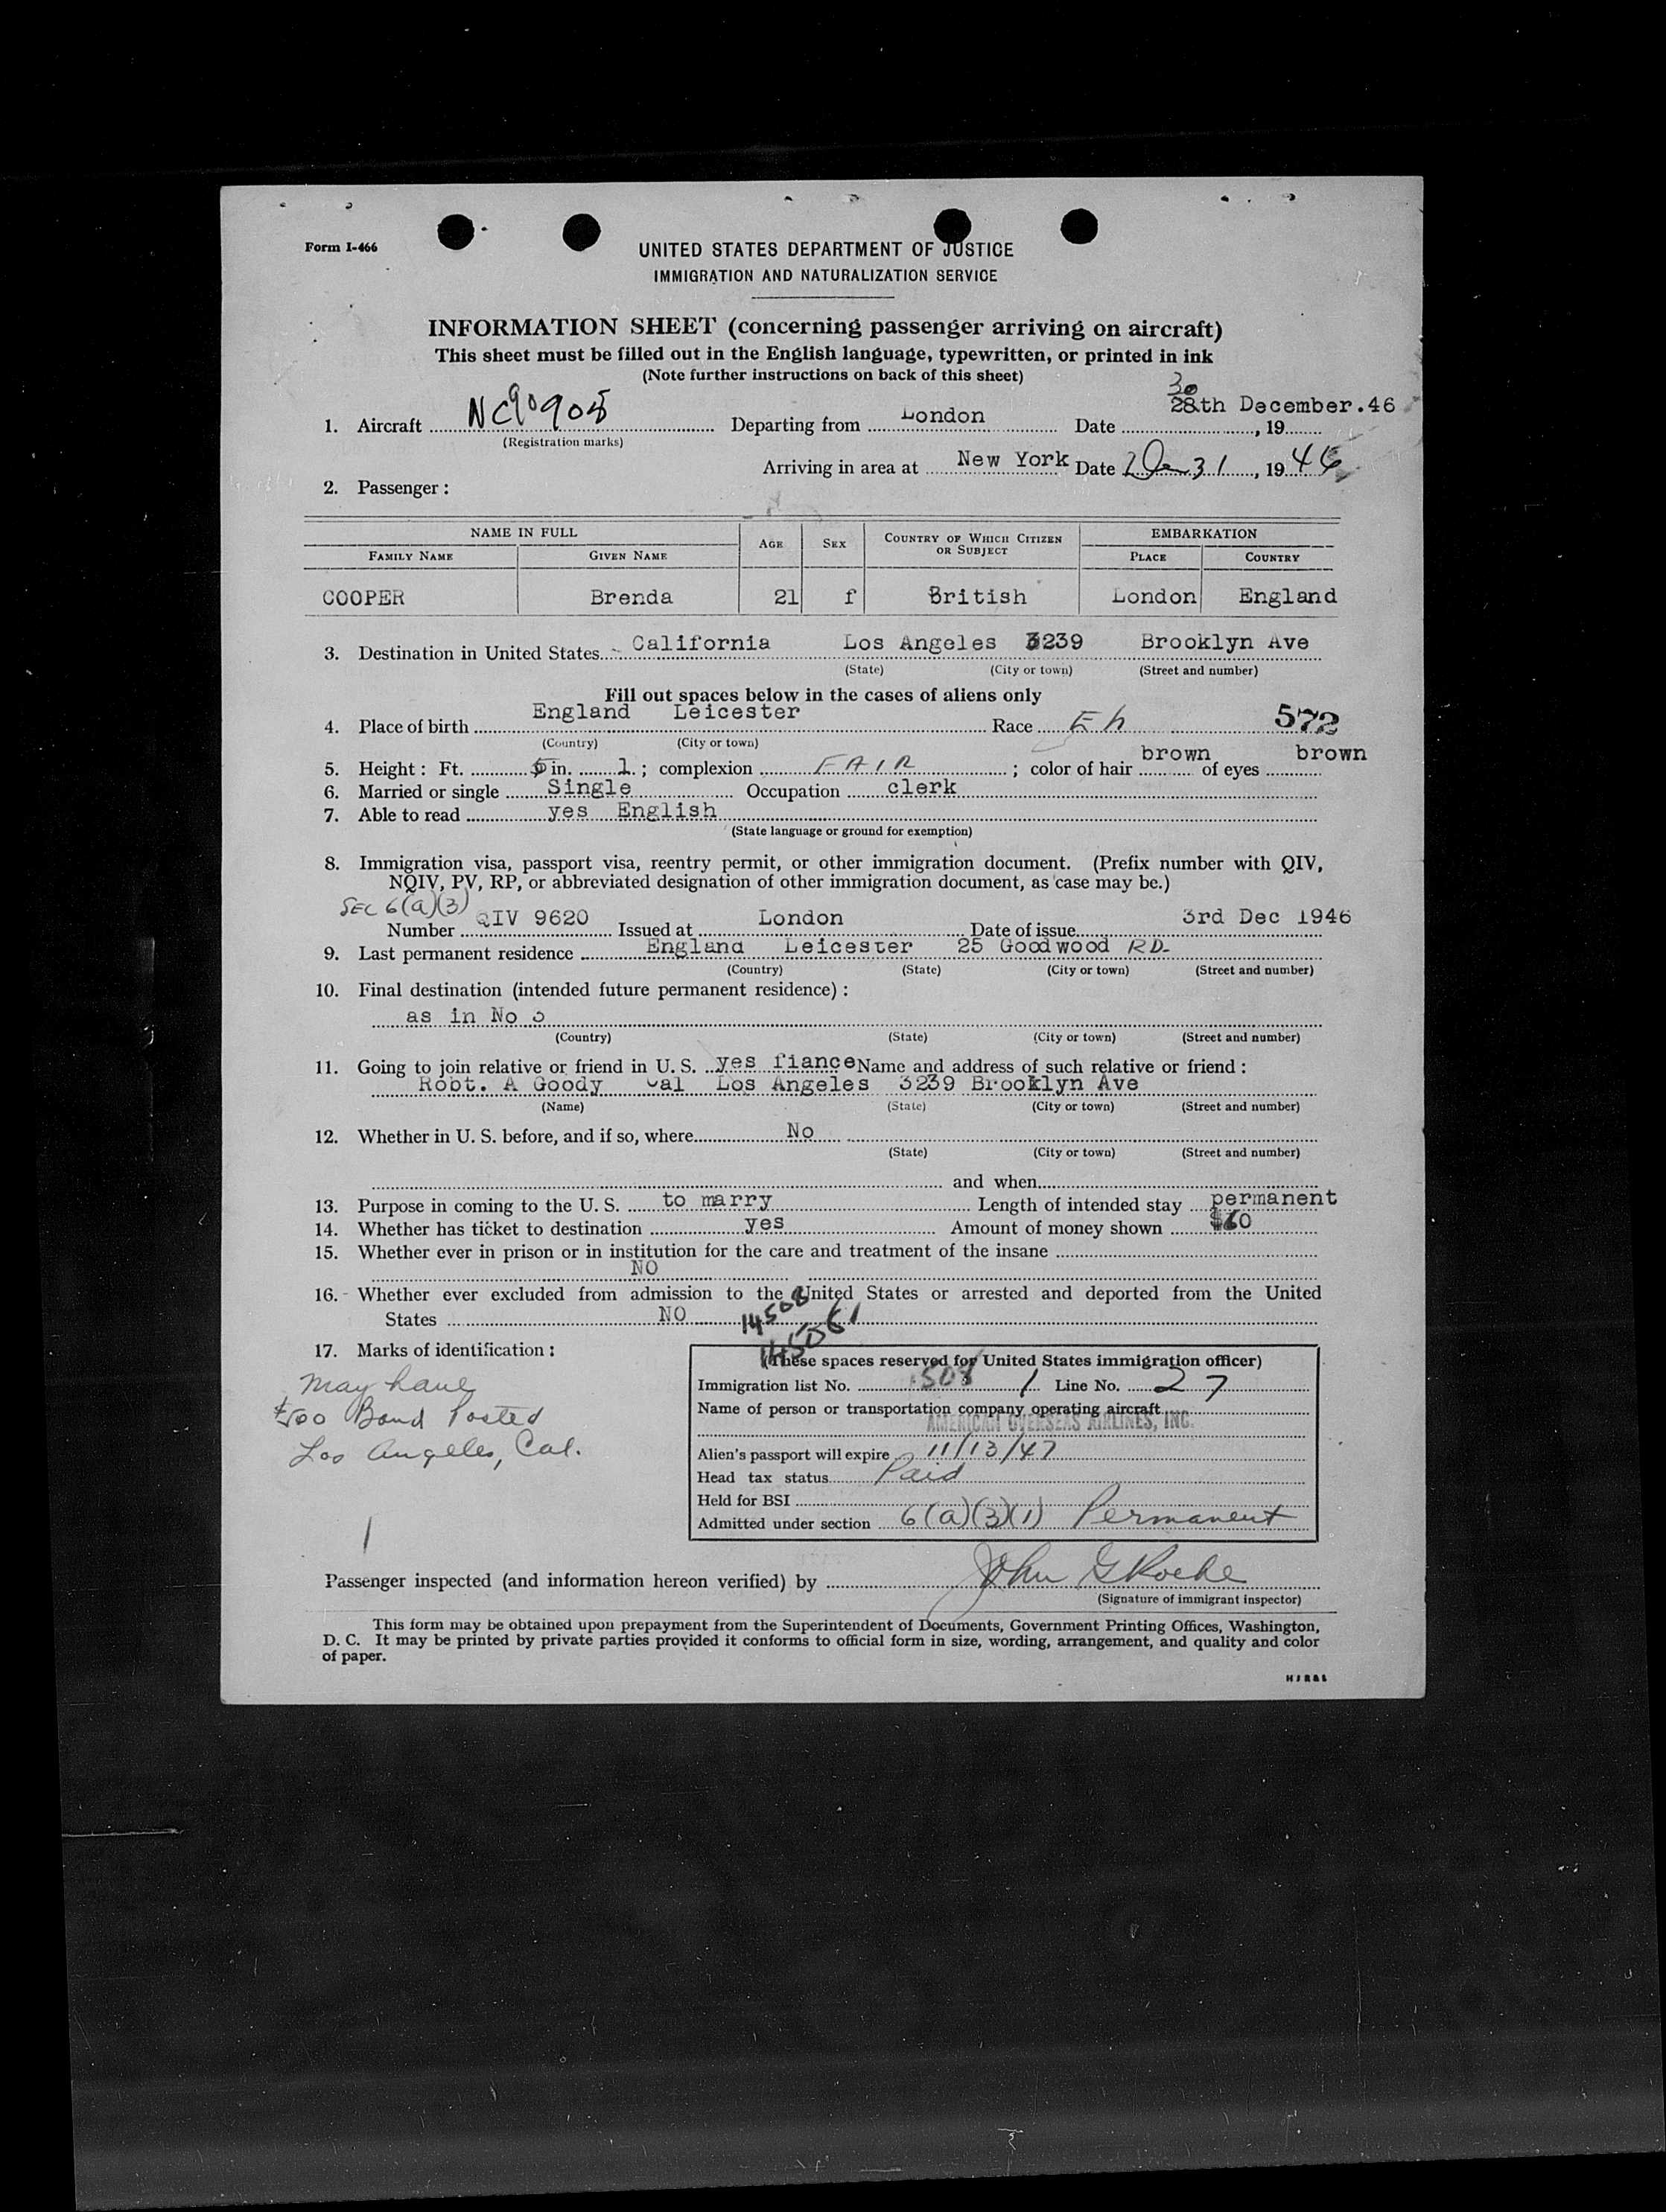 Form I-466
UNITED STATES DEPARTMENT OF JUSTICE
IMMIGRATION AND NATURALIZATION SERVICE
INFORMATION SHEET (concerning passenger arriving on aircraft)
This sheet must be filled out in the English language, typewritten, or printed in ink
(Note further instructions on back of this sheet)
30
1. Aircraft NC90905 Departing from London Date 28th December. 46, 19
(Registration marks)
Arriving in area at New York Date 31, 19 46
2. Passenger:
NAME IN FULL AGE SEX COUNTRY OF WHICH CITIZEN OR SUBJECT EMBARKATION
FAMILY NAME GIVEN NAME PLACE COUNTRY
COOPER Brenda 21 f British London England
3. Destination in United States California Los Angeles 3239 Brooklyn Ave
(State) (City or town) (Street and number)
Fill out spaces below in the cases of aliens only
4. Place of birth England Leicester Race Eh 572
(Country) (City or town)
5. Height: Ft. 5 in. 1; complexion FAIR; color of hair brown of eyes brown
6. Married or single Single Occupation clerk
7. Able to read yes English
(State language or ground for exemption)
8. Immigration visa, passport visa, reentry permit, or other immigration document. (Prefix number with QIV,
NQIV, PV, RP, or abbreviated designation of other immigration document, as case may be.)
SEC 6(a)(3)
Number QIV 9620 Issued at London Date of issue 3rd Dec 1946
9. Last permanent residence England Leicester 25 Goodwood RD.
(Country) (State) (City or town) (Street and number)
10. Final destination (intended future permanent residence):
as in No 3
(Country) (State) (City or town) (Street and number)
11. Going to join relative or friend in U. S. yes fiance Name and address of such relative or friend:
Robt. A Goody Cal Los Angeles 3239 Brooklyn Ave
(Name) (State) (City or town) (Street and number)
12. Whether in U. S. before, and if so, where No
(State) (City or town) (Street and number)
and when
13. Purpose in coming to the U. S. to marry Length of intended stay permanent
14. Whether has ticket to destination yes Amount of money shown $60
15. Whether ever in prison or in institution for the care and treatment of the insane
NO
16. Whether ever excluded from admission to the United States or arrested and deported from the United
States NO 14508
145061
17. Marks of identification:
may have
$500 Bond Posted
Los Angeles, Cal.
(These spaces reserved for United States immigration officer)
Immigration list No. 508 1 Line No. 27
Name of person or transportation company operating aircraft
AMERICAN OVERSEAS AIRLINES, INC.
Alien's passport will expire 11/13/47
Head tax status Paid
Held for BSI
Admitted under section 6(a)(3)(1) Permanent
1
Passenger inspected (and information hereon verified) by John G Roche
(Signature of immigrant inspector)
This form may be obtained upon prepayment from the Superintendent of Documents, Government Printing Offices, Washington,
D. C. It may be printed by private parties provided it conforms to official form in size, wording, arrangement, and quality and color
of paper.